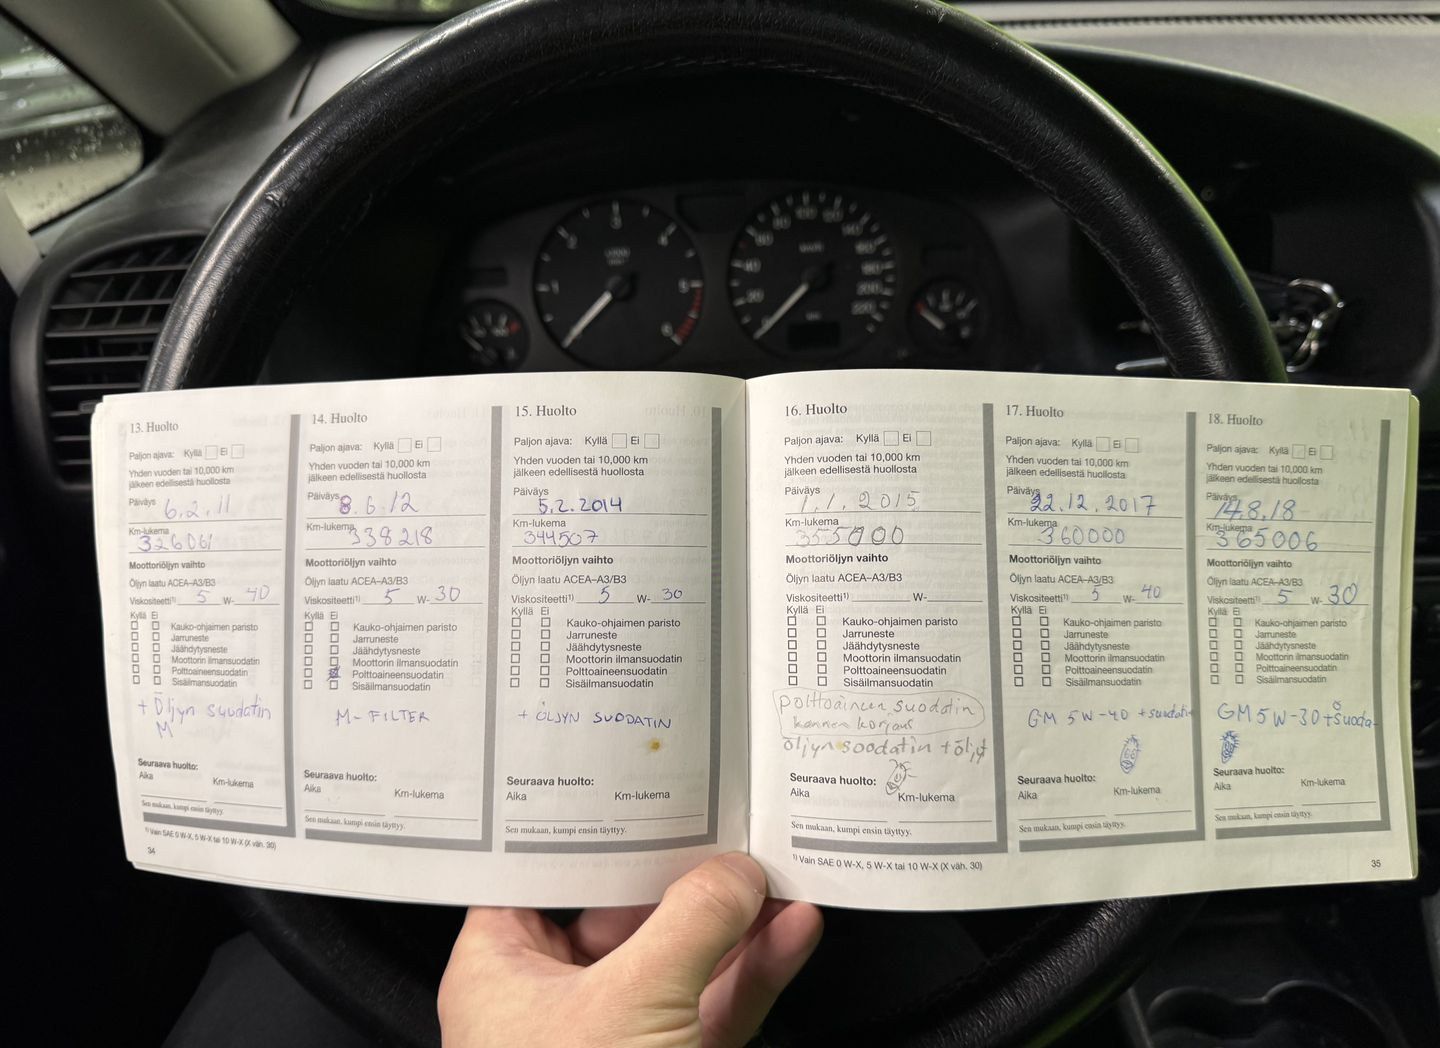 13. Huolto
Paljon ajava: Kyllä Ei
Yhden vuoden tai 10,000 km
jälkeen edellisestä huollosta
Päiväys 6.2.11
Km-lukema 326061
Moottoriöljyn vaihto
Öljyn laatu ACEA–A3/B3
Viskositeetti¹⁾ 5 W- 40
Kyllä Ei
Kauko-ohjaimen paristo
Jarruneste
Jäähdytysneste
Moottorin ilmansuodatin
Polttoaineensuodatin
Sisäilmansuodatin
+ Öljyn suodatin
M
Seuraava huolto:
Aika Km-lukema
Sen mukaan, kumpi ensin täyttyy.
¹⁾ Vain SAE 0 W-X, 5 W-X tai 10 W-X (X väh. 30)
34
14. Huolto
Paljon ajava: Kyllä Ei
Yhden vuoden tai 10,000 km
jälkeen edellisestä huollosta
Päiväys 8.6.12
Km-lukema 338218
Moottoriöljyn vaihto
Öljyn laatu ACEA–A3/B3
Viskositeetti¹⁾ 5 W- 30
Kyllä Ei
Kauko-ohjaimen paristo
Jarruneste
Jäähdytysneste
Moottorin ilmansuodatin
Polttoaineensuodatin
Sisäilmansuodatin
M-FILTER
Seuraava huolto:
Aika Km-lukema
Sen mukaan, kumpi ensin täyttyy.
15. Huolto
Paljon ajava: Kyllä Ei
Yhden vuoden tai 10,000 km
jälkeen edellisestä huollosta
Päiväys 5.2.2014
Km-lukema 344507
Moottoriöljyn vaihto
Öljyn laatu ACEA–A3/B3
Viskositeetti¹⁾ 5 W- 30
Kyllä Ei
Kauko-ohjaimen paristo
Jarruneste
Jäähdytysneste
Moottorin ilmansuodatin
Polttoaineensuodatin
Sisäilmansuodatin
+ ÖLJYN SUODATIN
Seuraava huolto:
Aika Km-lukema
Sen mukaan, kumpi ensin täyttyy.
16. Huolto
Paljon ajava: Kyllä Ei
Yhden vuoden tai 10,000 km
jälkeen edellisestä huollosta
Päiväys 1.1.2015
Km-lukema 355000
Moottoriöljyn vaihto
Öljyn laatu ACEA–A3/B3
Viskositeetti¹⁾ W-
Kyllä Ei
Kauko-ohjaimen paristo
Jarruneste
Jäähdytysneste
Moottorin ilmansuodatin
Polttoaineensuodatin
Sisäilmansuodatin
polttoaineen suodatin
kannen korjaus
öljyn suodatin + öljyt
Seuraava huolto:
Aika Km-lukema
Sen mukaan, kumpi ensin täyttyy.
¹⁾ Vain SAE 0 W-X, 5 W-X tai 10 W-X (X väh. 30)
17. Huolto
Paljon ajava: Kyllä Ei
Yhden vuoden tai 10,000 km
jälkeen edellisestä huollosta
Päiväys 22.12.2017
Km-lukema 360000
Moottoriöljyn vaihto
Öljyn laatu ACEA–A3/B3
Viskositeetti¹⁾ 5 W- 40
Kyllä Ei
Kauko-ohjaimen paristo
Jarruneste
Jäähdytysneste
Moottorin ilmansuodatin
Polttoaineensuodatin
Sisäilmansuodatin
GM 5W-40 + suodatin
Seuraava huolto:
Aika Km-lukema
Sen mukaan, kumpi ensin täyttyy.
18. Huolto
Paljon ajava: Kyllä Ei
Yhden vuoden tai 10,000 km
jälkeen edellisestä huollosta
Päiväys 14.8.18
Km-lukema 365006
Moottoriöljyn vaihto
Öljyn laatu ACEA–A3/B3
Viskositeetti¹⁾ 5 W- 30
Kyllä Ei
Kauko-ohjaimen paristo
Jarruneste
Jäähdytysneste
Moottorin ilmansuodatin
Polttoaineensuodatin
Sisäilmansuodatin
GM 5W-30 + Suoda-
Seuraava huolto:
Aika Km-lukema
Sen mukaan, kumpi ensin täyttyy.
35